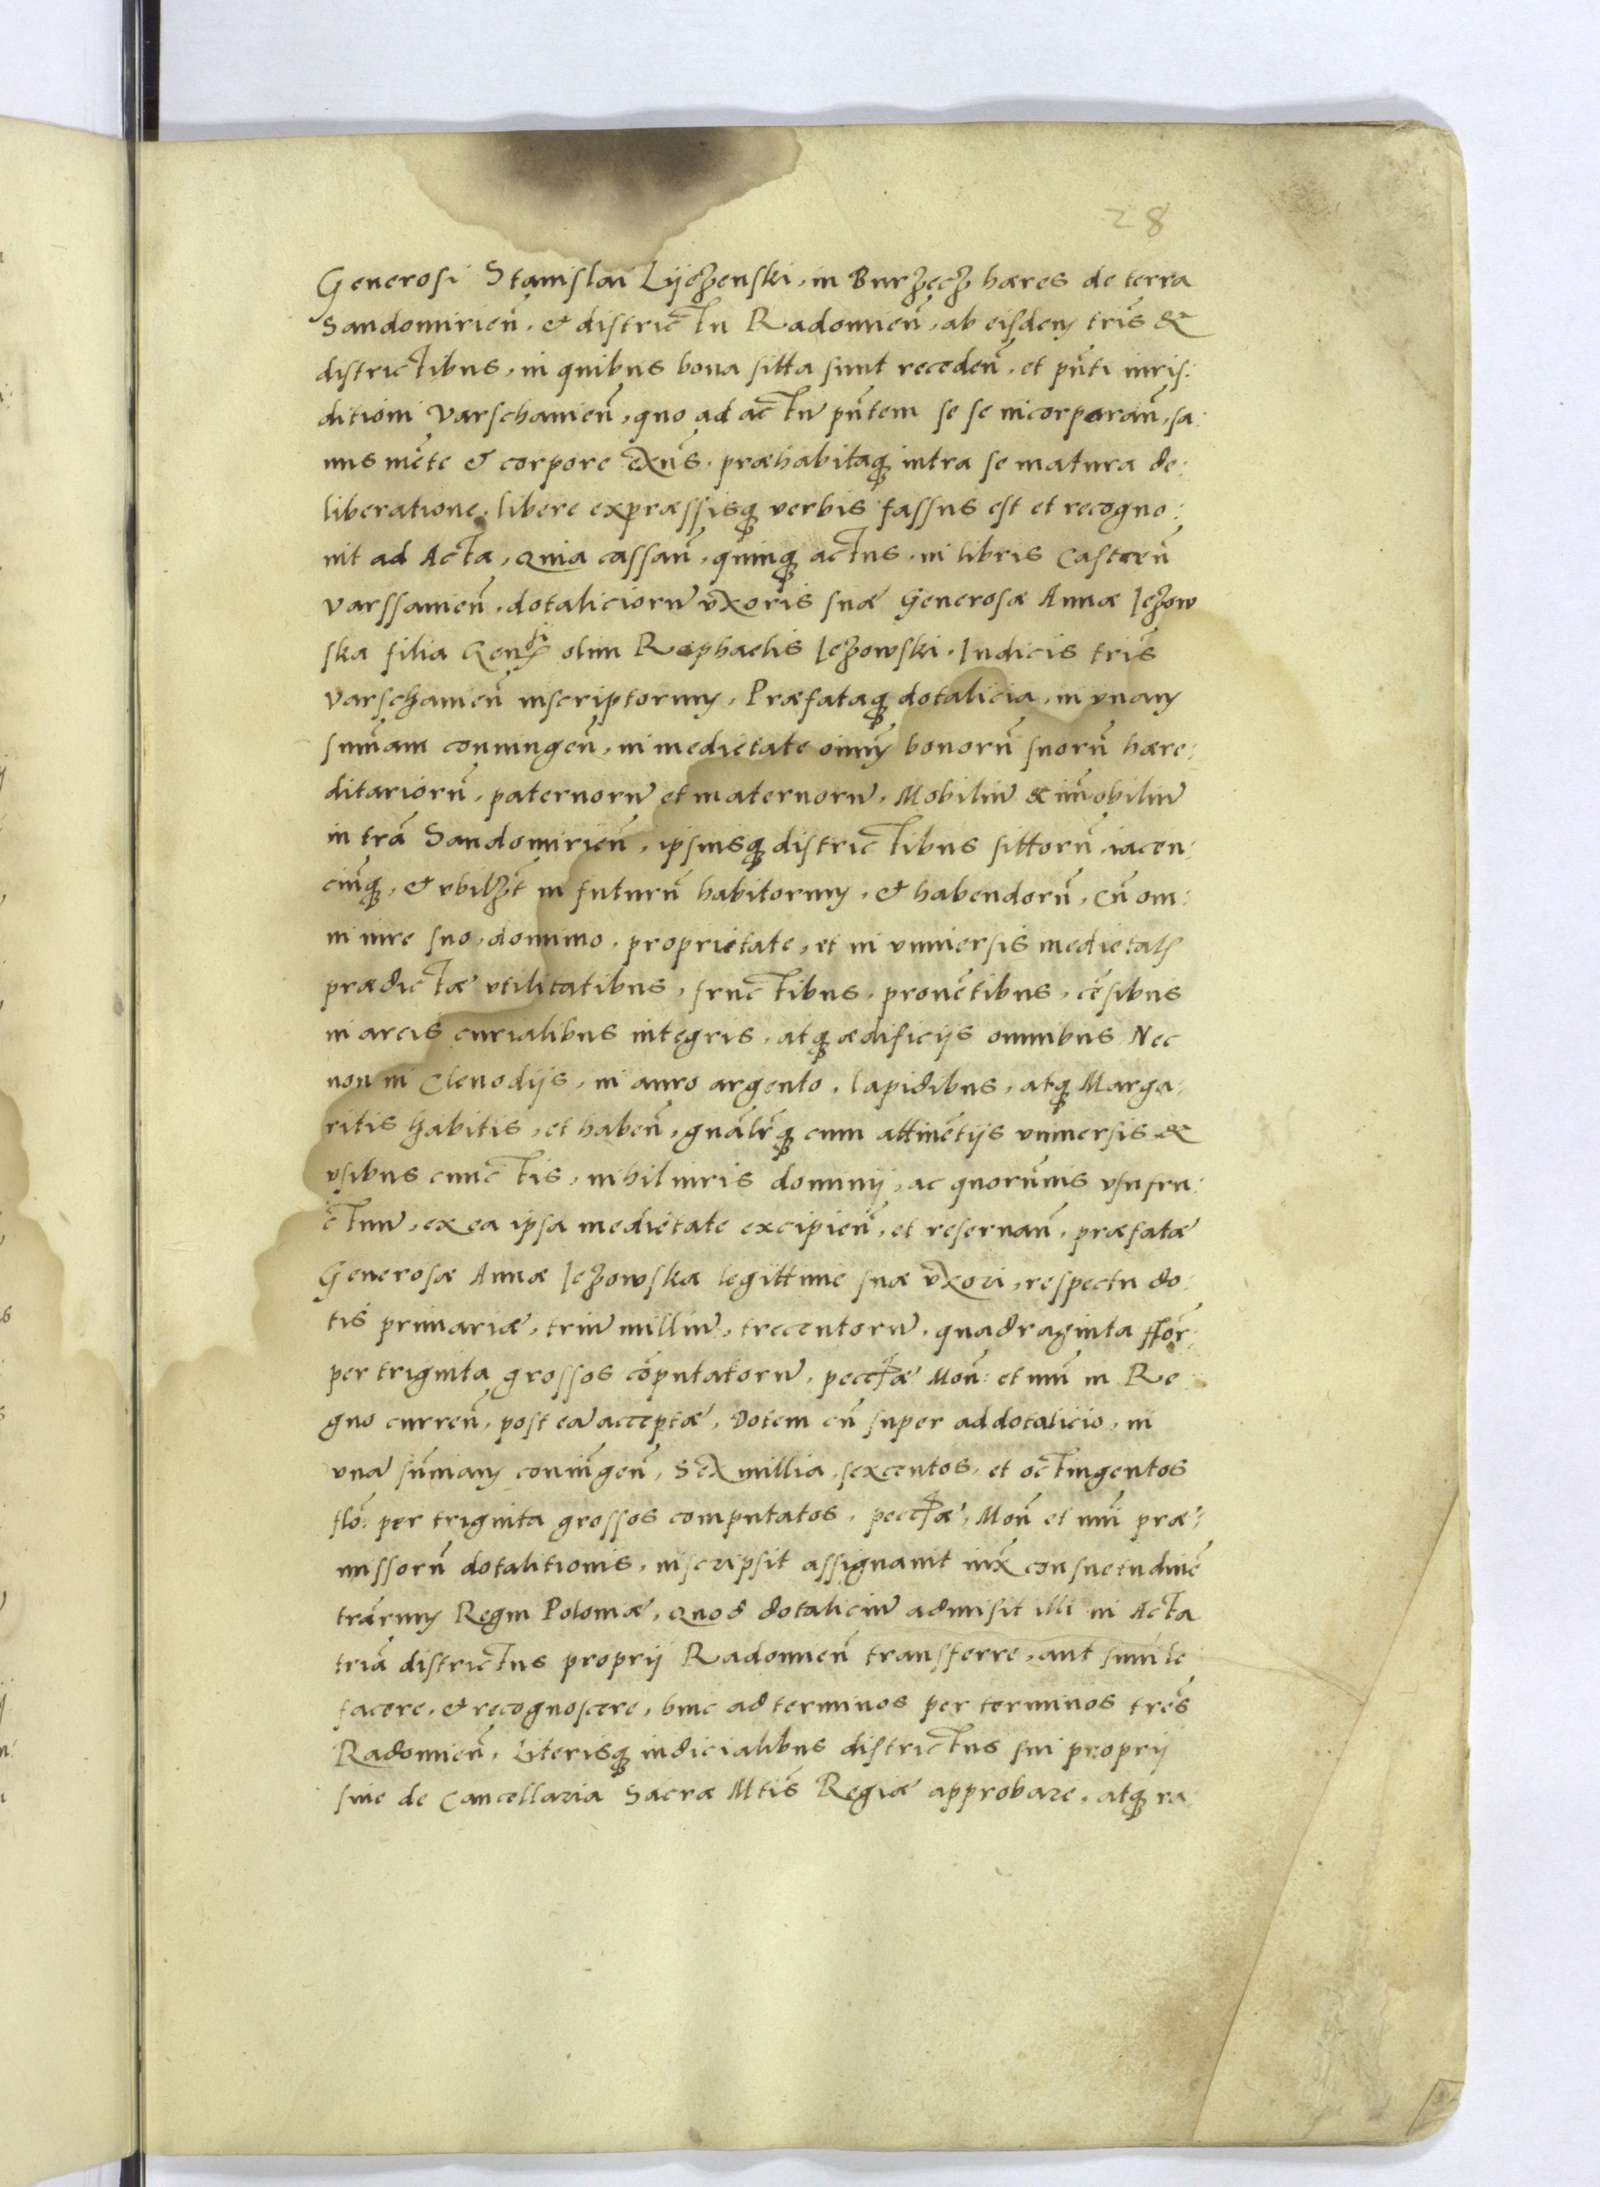 28
Generosi Stanislai Lijeʒenski, in Burʒecʒ hæres de terra
Sandomirien̄, & districtu Radomien̄, ab eisdem tr̄is &
districtibus, in quibus bona sitta sunt receden̄, et pn̄ti iuris:
ditioni Varschauien̄, quo ad actū pn̄tem se se incorporan̄, sa:
nus mēte & corpore exn̄s, præhabitaq₃ intra se matura de:
liberatione, libere expræssisq₃ verbis fassus est et recogno:
uit ad Acta, Quia cassan̄, quinq₃ actus, in libris Castren̄
Varssauien̄, dotaliciorū vxoris suæ Generosæ Annæ Jeʒow
ska filia Gen̄si olim Raphaelis Jeʒowski, Iudicis tr̄is
Varschauien̄ inscriptorum, Præfataq₃ dotalicia, in vnam
sum̄am coniungen̄, in medietate oim̄ bonorū suorū hære:
ditariorū, paternorū et maternorū, Mobiliū & im̄obiliū
in tr̄a Sandomirien̄, ipsiusq₃ districtibus sittorū, iacen:
ciūq₃, & vbilʒt in futurū habitorum, & habendorū, Cū om:
ni iure suo, dominio, proprietate, et in vniuersis medietatis
prædictæ vtilitatibus, fructibus, prouētibus, cēsibus
in arcis curialibus integris, atq₃ ædificijs omnibus Nec
non in Clenodijs, in auro argento, lapidibus, atq₃ Marga:
ritis habitis, et haben̄, gn̄alr̄q₃ cum attinētijs vniuersis &
vsibus cunctis, nihil iuris dominij, ac quorumuis vsufru:
ctuū, ex ea ipsa medietate excipien̄, et reseruan̄, præfatæ
Generosæ Annæ Jeʒowska legittime suæ vxori, respectu do:
tis primariæ, triū milliū, trecentorū, quadraginta flor̄:
per triginta grossos cōputatorū, peccꝭæ Mon̄: et nūi in Re:
gno curren̄, post eā acceptæ, Dotem cū super addotalicio, in
vnā sum̄am coniūgen̄, Sex millia, sexcentos, et octingentos
flō: per triginta grossos computatos, peccꝭæ, Mon̄ et nūi præ:
missorū dotalitionis, inscripsit assignauit iux̄ consuetudinē
tr̄arum Regni Poloniæ, Quod dotaliciū admisit illi in Acta
tr̄ia districtus proprij Radomien̄ transferre, aut simile
facere, & recognoscere, huic ad terminos per terminos tr̄es
Radomien̄, Literisq₃ iudicialibus districtus sui proprij
siue de Cancellaria Sacræ Mtīs Regiæ approbare, atq₃ ra: